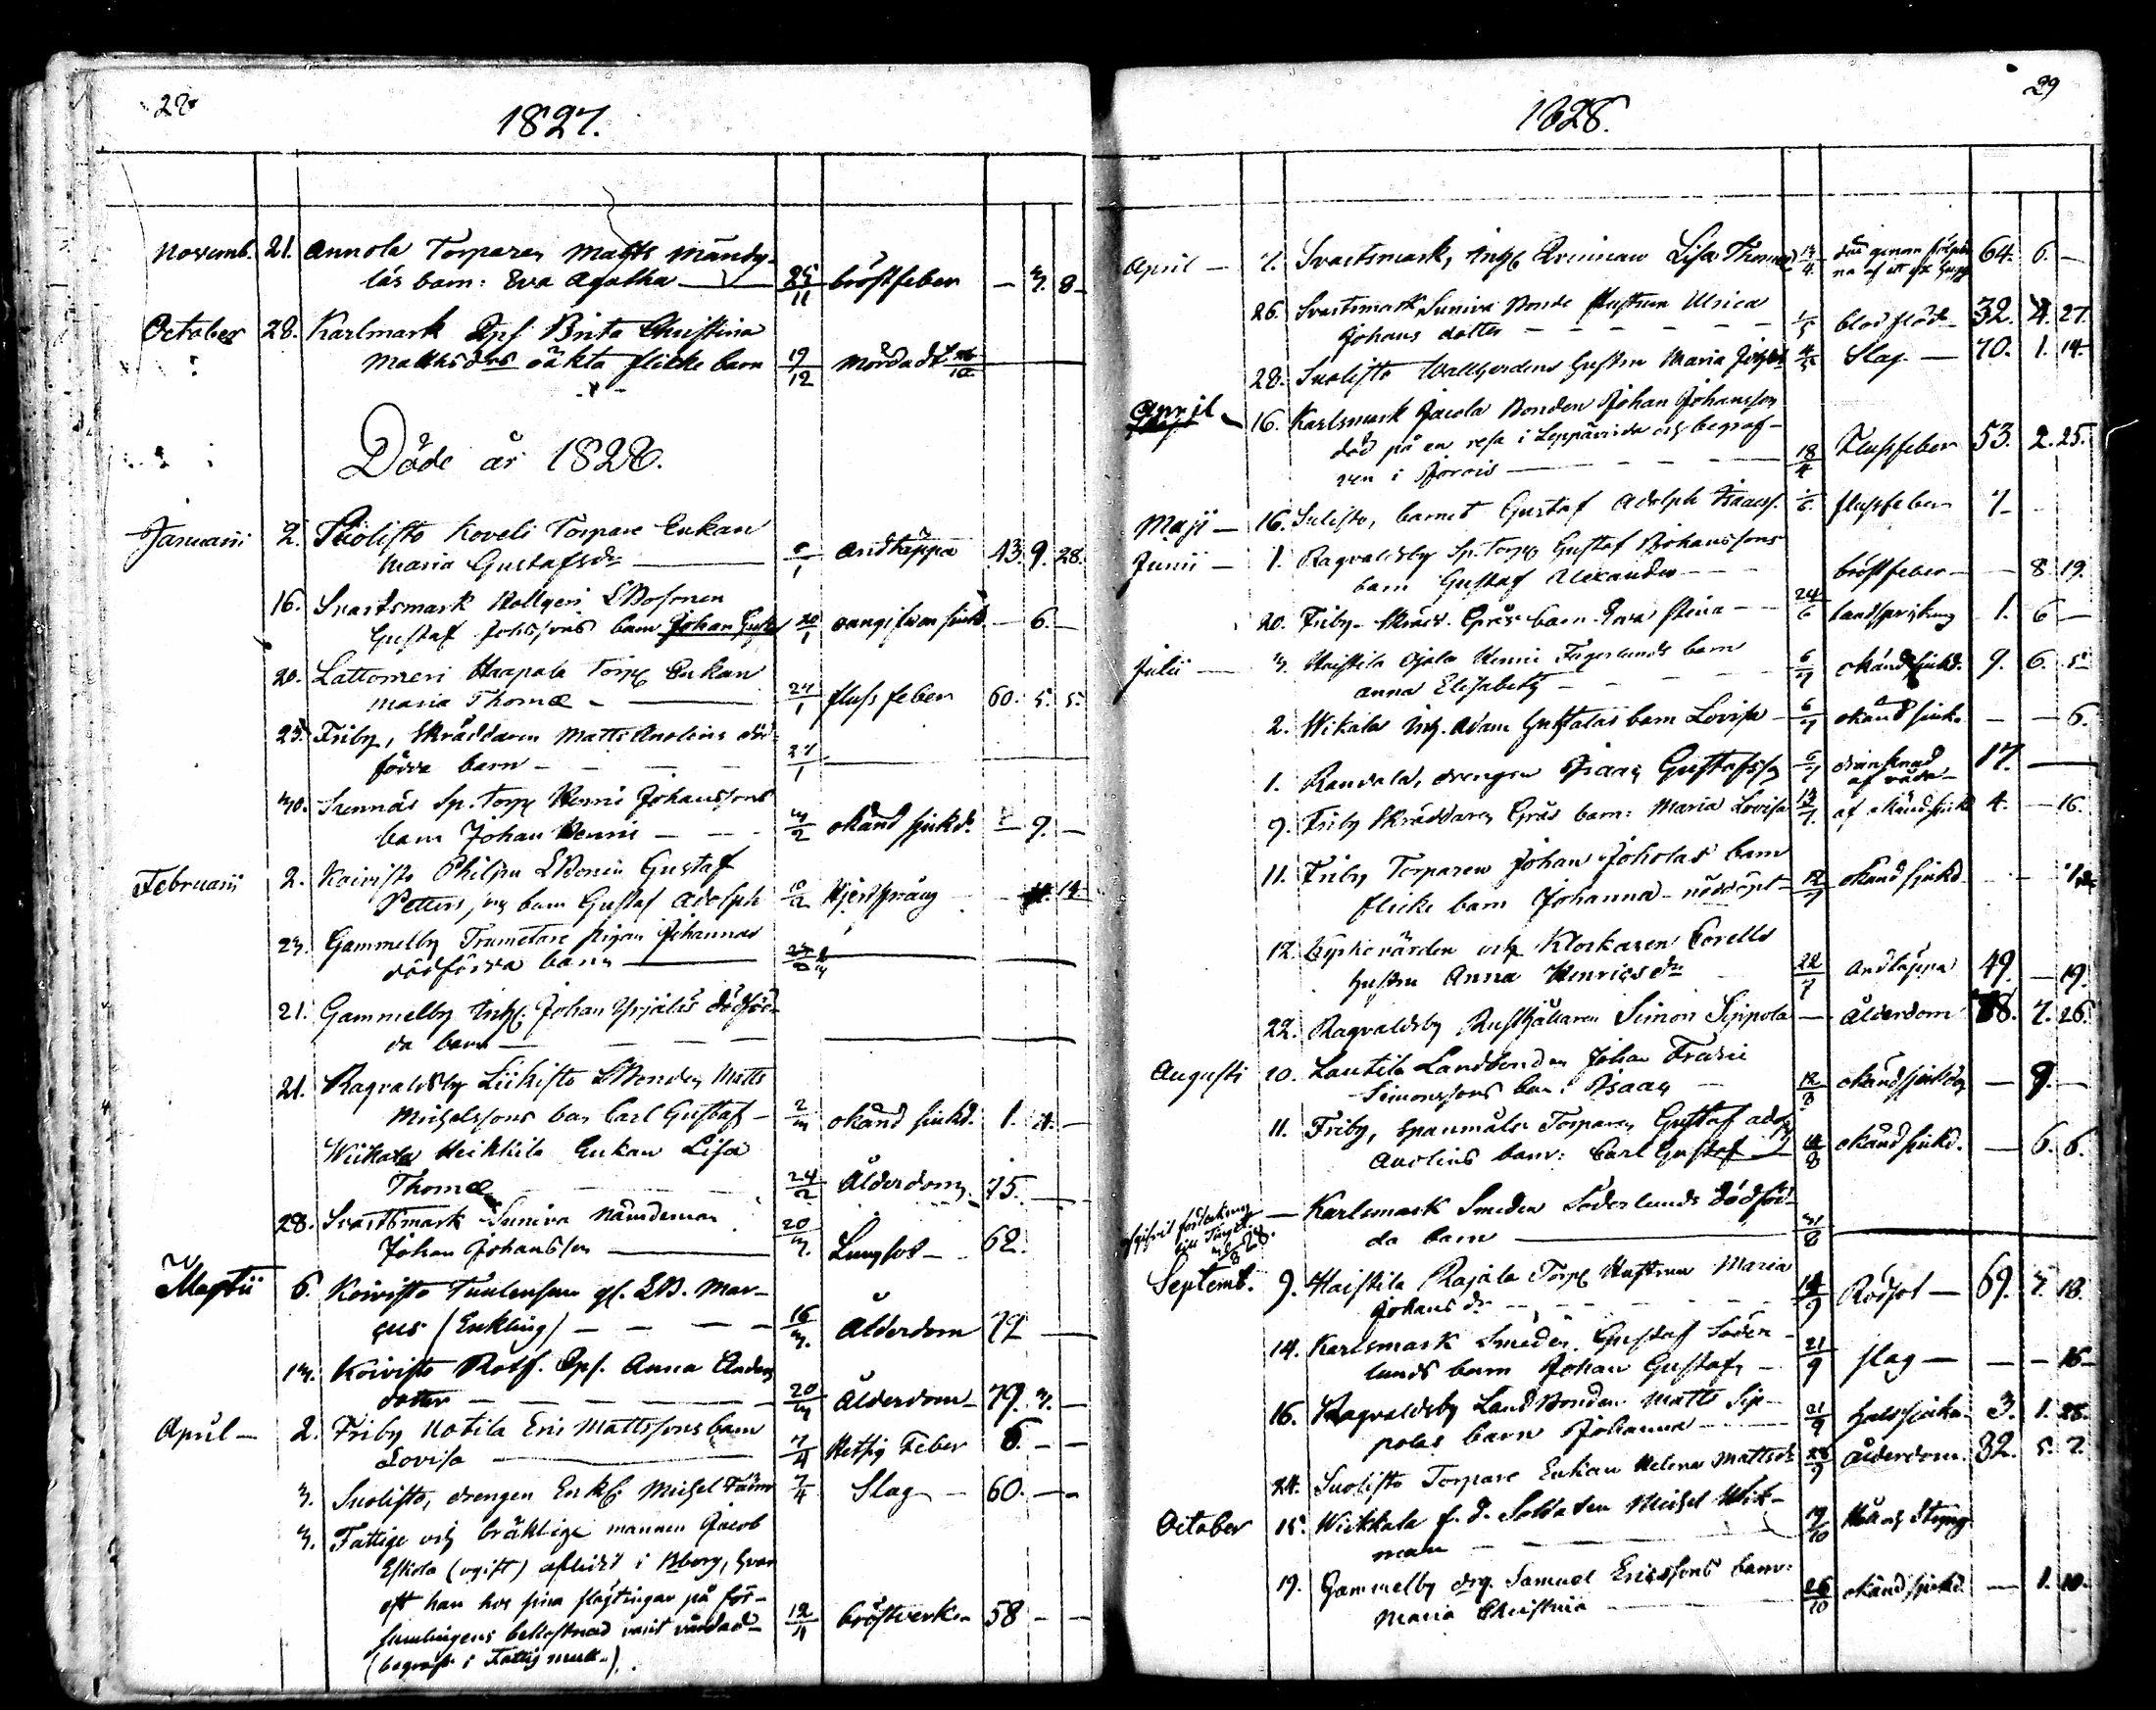 28
1827.
Novemb. 21. Annola Torparen Matts
barn: Eva Agatha 25/11 bröstfeber — 3. 8
October 28. Karlmark Brita Christina
Matthsdrs oäkta flicke barn 19/12 mördadt
Döde år 1828.
Januarii 2. Suolisto Koveli Torpare Enkan
Maria Gustafsdr andtäppa 43. 9. 28.
16. Svartsmark
Gustaf barn Johan 20/1 — 6. —
20. Lattomeri Haapala Torp Enkan
Maria Thomæ 27/1 fluss feber 60. 5. 5.
23. Friby, Skräddaren Matts Anolins död-
födda barn 27/1
30. Sonnäs Sp. Torp Henric Johanssons
barn Johan Henric 3/2 okänd sjukd. 9. —
Februarii 2. Koivisto Philpu Gustaf
Petterssons barn Gustaf Adolph 10/2 14
23. Gammelby Trumetare Johannas
dödfödda barn
21. Gammelby Inhs. Johan Yrjäläs dödföd-
da barn
21. Ragvaldsby Liikisto LBonden Matts
Michelssons barn Carl Gustaf 2/3 okänd sjukd. 1. —
Wiikala Heikkila Enkan Lisa
Thomæ 24/2 Ålderdom 75.
28. Svartsmark Suniva Nämdeman
Johan Johansson 20/3. Lungsot 62.
Martii 6. Koivisto gl. LB. Mar-
cus (Enkling) 16/3. Ålderdom 79
13. Koivisto Rotf. Anna Anders
dotter 20/3 Ålderdom 79. 3. —
April 2. Friby Uotila Eric Mattssons barn
Lovisa 7/4 Hetsig Feber 6. — —
3. Suolisto, drengen Enkl. Michel 7/4 Slag 60. —
3. Fattige och bräcklige mannen Jacob
Eskola (ogift) afledit i Bborg, hvar-
est han hos sina slägtingar på för-
samlingens bekostnad varit vårdad 12/4 bröstverk 58 — —
(begrafv. i Fattig mull.)
29
1828.
April 7. Svartsmark, Inhs Qvinnan Lisa 64. 6. —
26. Svartsmark Suniva Bonde Hustrun Ulrica
Johans dotter 1/5 blodflöd 32. 4. 27.
28. Suolisto Hustru Maria Slag 70. 1. 14.
April 16. Karlsmark Jacola Bonden Johan Johansson
död på en resa i Leppävirda och begraf-
ven i Jorois 18/4 Flussfeber 53. 2. 25.
Maji 16. Sulisto, barnet Gustaf Adolph flussfeber 7
Junii 1. Ragvaldsby Sp. Torp Gustaf Johanssons
barn Gustaf Alexander bröstfeber 8 19.
20. Friby Skrädd. Gräs barn Eva Stina 24/6 tandsprickning 1. 6 —
Julii 3. Haistila Ojala Henric Fagerlunds barn
Anna Elisabeth 6/7 okänd sjukd. 9. 6. 5
2. Wikala Inh. Adam barn Lovisa 6/7 okänd sjukd. — — 6.
1. Ravdala, drengen Isaac Gustafsson 6/7 drunknad af våda 17. —
9. Friby Skräddaren Gräs barn: Maria Lovisa 13/7. af okänd sjukd 4. — 16.
11. Friby Torparen Johan Joholas barn
flicke barn Johanna nöddöpt 12/7 okänd sjukd.
12. Kyrkovärden och Klockaren Corells
hustru Anna Henricsdr 22/7 Andtäppa 49. — 19.
22. Ragvaldsby Rusthållaren Simon Sippola — Ålderdom 78. 7. 26.
Augusti 10. Lautila Landbonden Johan Fredric
Simonssons barn Isaac 12/8 okänd sjukdom — 9. —
11. Friby, Spanmåls Torparen Gustaf Adolf
Anolins barn: Carl Gustaf 8 okänd sjukd. — 6. 6.
— Karlsmark Smeden Söderlunds dödföd-
da barn 31/8
Septemb. 9. Haistila Rajala Torp Hustrun Maria
Johans dr 14/9 Rödsot 69. 7. 18.
14. Karlsmark Smeden Gustaf Söder-
lunds barn Johan Gustaf 21/9 slag — — 16
16. Ragvaldsby Landbonden Matts Sip-
polas barn Johanna 21/9 halssjuka 3. 1. 28.
24. Suolisto Torpare Enkan Helena Mattsdr 28/9 ålderdom. 82. 5. 7.
October 15. Wiikkala f. d. Soldaten Michel Wik-
man 19/10 Håll och Styng
19. Gammelby drg. Samuel Ericssons barn:
Maria Christina 26/10 okänd sjukd. — 1. 10.